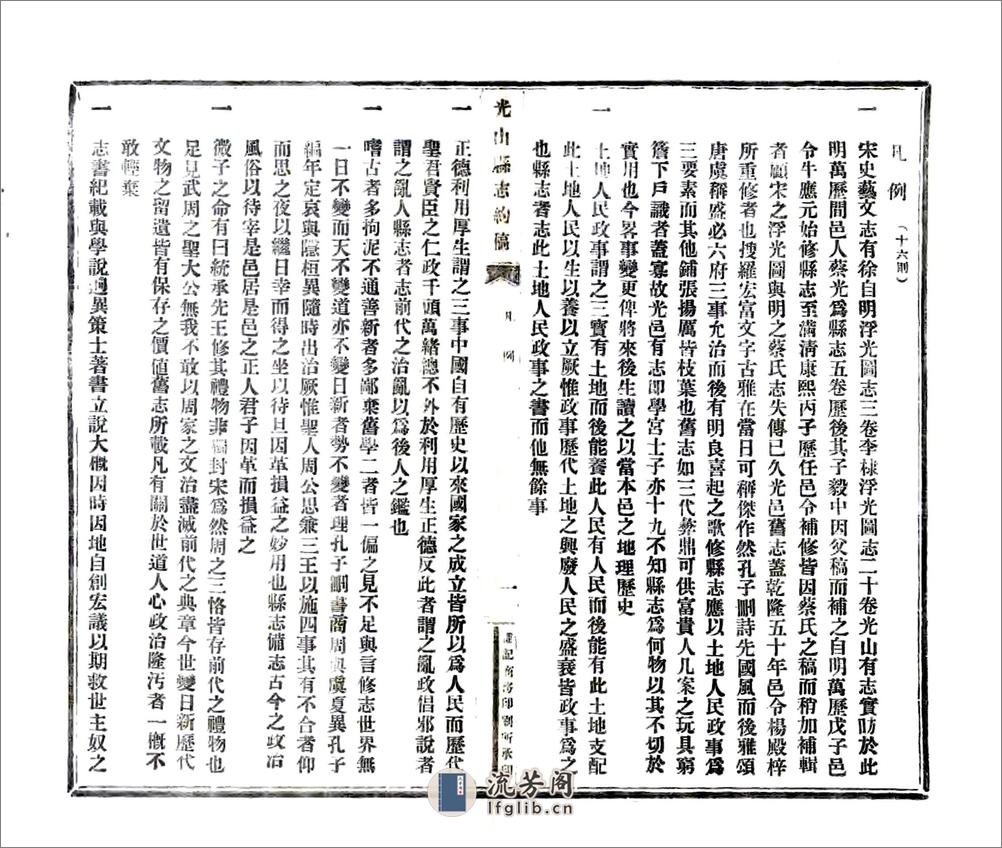 凡例（十六則）
一 宋史藝文志有徐自明浮光圖志三卷李棣浮光圖志二十卷光山有志實昉於此
明萬歷間邑人蔡光爲縣志五卷歷後其子毅中因父稿而補之自明萬歷戊子邑
令牛應元始修縣志至滿清康熙丙子歷任邑令補修皆因蔡氏之稿而稍加補輯
者顧宋之浮光圖與明之蔡氏志失傳已久光邑舊志蓋乾隆五十年邑令楊殿梓
所重修者也搜羅宏富文字古雅在當日可稱傑作然孔子刪詩先國風而後雅頌
唐虞稱盛必六府三事允治而後有明良喜起之歌修縣志應以土地人民政事爲
三要素而其他鋪張揚厲皆枝葉也舊志如三代彜鼎可供富貴人几案之玩具窮
簷下戶識者蓋寡故光邑有志即學宮士子亦十九不知縣志爲何物以其不切於
實用也今畧事變更俾將來後生讀之以當本邑之地理歷史
一 土地人民政事謂之三寶有土地而後能養此人民有人民而後能有此土地支配
此土地人民以生以養以立厥惟政事歷代土地之興廢人民之盛衰皆政事爲之
也縣志者志此土地人民政事之書而他無餘事
光山縣志約稿
凡例
一
謙記商務印刷所承印
一 正德利用厚生謂之三事中國自有歷史以來國家之成立皆所以爲人民而歷代
聖君賢臣之仁政千頭萬緒總不外於利用厚生正德反此者謂之亂政倡邪說者
謂之亂人縣志者志前代之治亂以爲後人之鑑也
一 嗜古者多拘泥不通善新者多鄙棄舊學二者皆一偏之見不足與言修志世界無
一日不變而天不變道亦不變日新者勢不變者理孔子刪書商周與虞夏異孔子
編年定哀與隱桓異隨時出治厥惟聖人周公思兼三王以施四事其有不合者仰
而思之夜以繼日幸而得之坐以待旦因革損益之妙用也縣志備志古今之政治
風俗以待宰是邑居是邑之正人君子因革而損益之
一 微子之命有曰統承先王修其禮物非獨封宋爲然周之三恪皆存前代之禮物也
足見武周之聖大公無我不敢以周家之文治盡滅前代之典章今世變日新歷代
文物之留遺皆有保存之價値舊志所載凡有關於世道人心政治隆汚者一槪不
敢輕棄
一 志書紀載與學說逈異策士著書立說大槪因時因地自創宏議以期救世主奴之
流芳阁
lfglib.cn